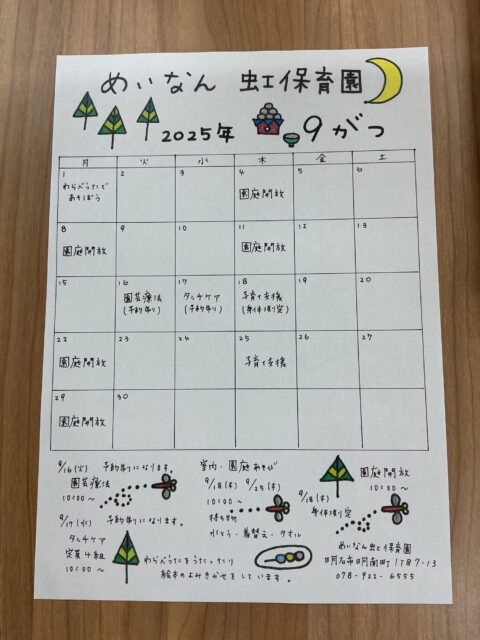 めいなん 虹保育園
2025年 9がつ
月 火 水 木 金 土
1 2 3 4 5 6
わらべうたで
あそぼう
園庭開放
8 9 10 11 12 13
園庭開放 園庭開放
15 16 17 18 19 20
園芸療法 タッチケア 子育て支援
(予約有り) (予約有り) (身体測定)
22 23 24 25 26 27
園庭開放 子育て支援
29 30
園庭開放
9/16(火) 予約有りになります。
園芸療法
10:00~
9/17(水) 予約有りになります。
タッチケア
定員4組
10:00~
室内・園庭あそび
9/18(木) 9/25(木)
10:00~
持ち物
水とう・着替え・タオル
わらべうたをうたったり
絵本のよみきかせをしています。
園庭開放
10:00~
9/18(木)
身体測定
めいなん虹保育園
明石市明南町1丁目7-13
078-922-6555